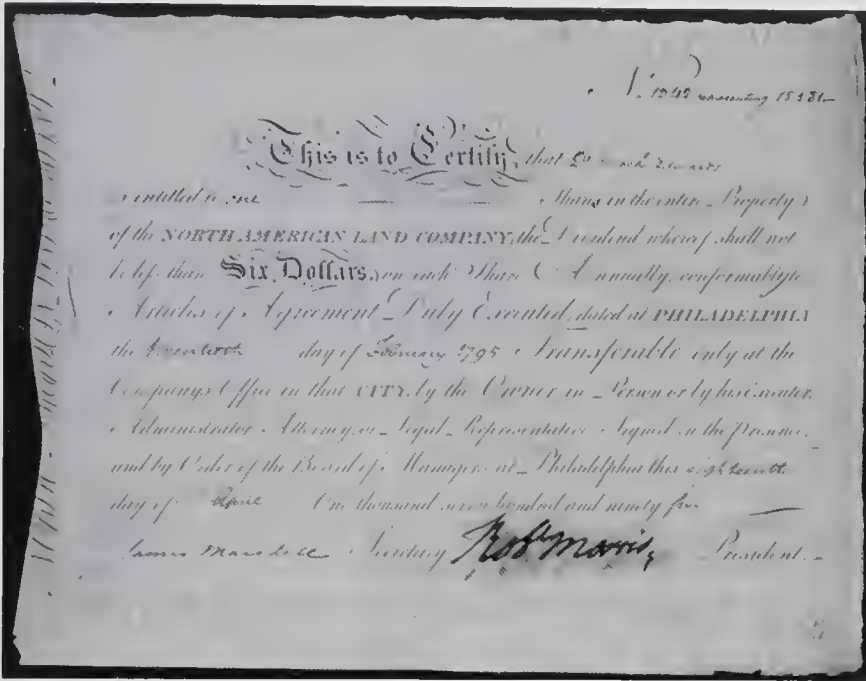 No. 1342 representing 15181
This is to Certify, that
is entitled to one Share in the entire Property
of the NORTH AMERICAN LAND COMPANY, the Dividend whereof shall not
be less than Six Dollars, on each Share Annually, conformably to
Articles of Agreement Duly Executed, dated at PHILADELPHIA
the twentieth day of February 1795 Transferable only at the
Company's Office in that CITY, by the Owner in Person or by his Executor,
Administrator Attorney, or Legal Representative Signed in the Presence,
and by Order of the Board of Managers at Philadelphia this eighteenth
day of April One thousand seven hundred and ninety five
James Marshall Secretary Robt Morris, President.